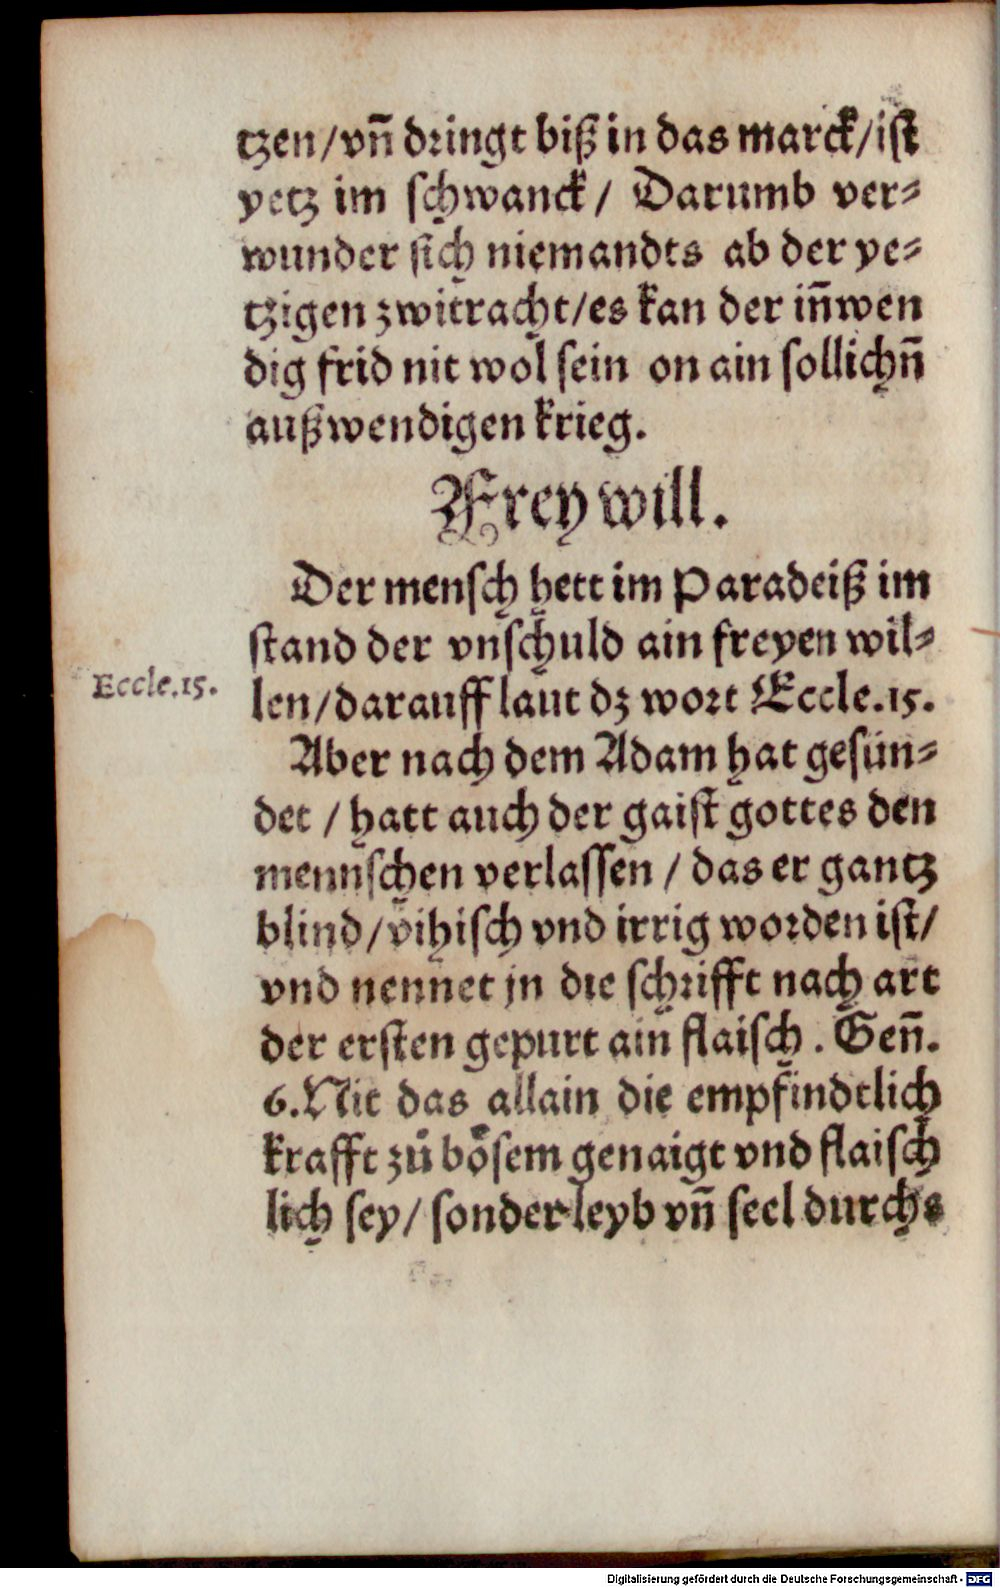 tzen/vñ dringt biß in das marck/ist
yetz im schwanck/ Darumb ver⸗
wunder sich niemandts ab der ye⸗
tzigen zwitracht/es kan der iñwen
dig frid nit wol sein on ain sollichñ
außwendigen krieg.
Frey will.
Der mensch hett im Paradeiß im
stand der vnschuld ain freyen wil⸗
Eccle.15.
len/darauff laut dz wort Eccle.15.
Aber nach dem Adam hat gesün⸗
det / hatt auch der gaist gottes den
mennschen verlassen / das er gantz
blind/vihisch vnd irrig worden ist/
vnd nennet jn die schrifft nach art
der ersten gepurt ain flaisch. Geñ.
6.Nit das allain die empfindtlich
krafft zů bösem genaigt vnd flaisch
lich sey/ sonder leyb vñ seel durchs
Digitalisierung gefördert durch die Deutsche Forschungsgemeinschaft - DFG